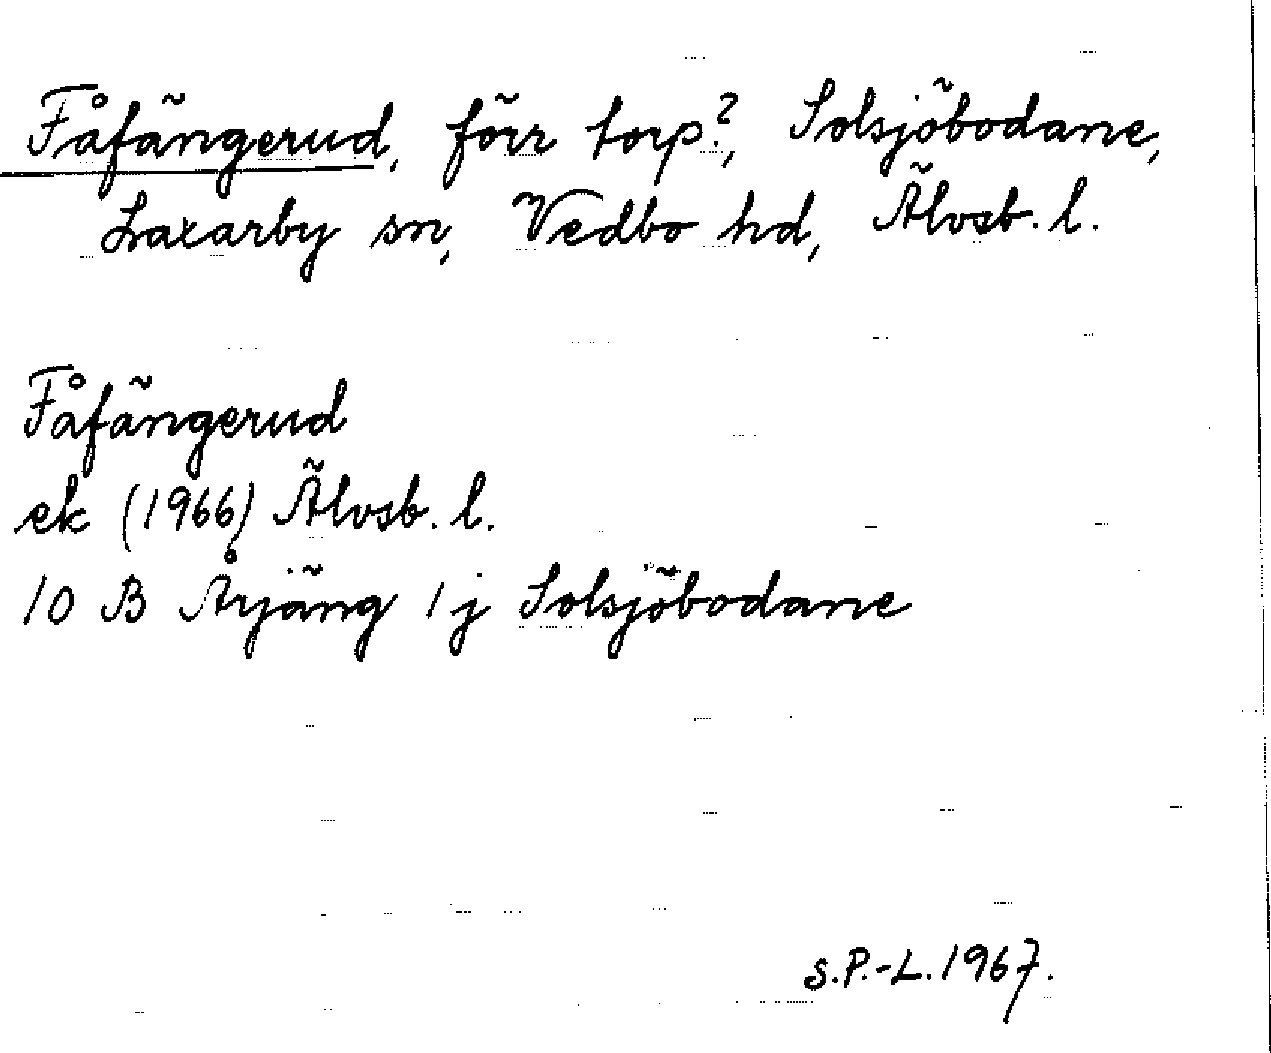 Fåfängerud, förr torp?, Solsjöbodane,
Laxarby sn, Vedbo hd, Älvsb. l.
Fåfängerud
ek (1966) Älvsb. l.
10 B Årjäng 1 j Solsjöbodane
S.P.-L. 1967.